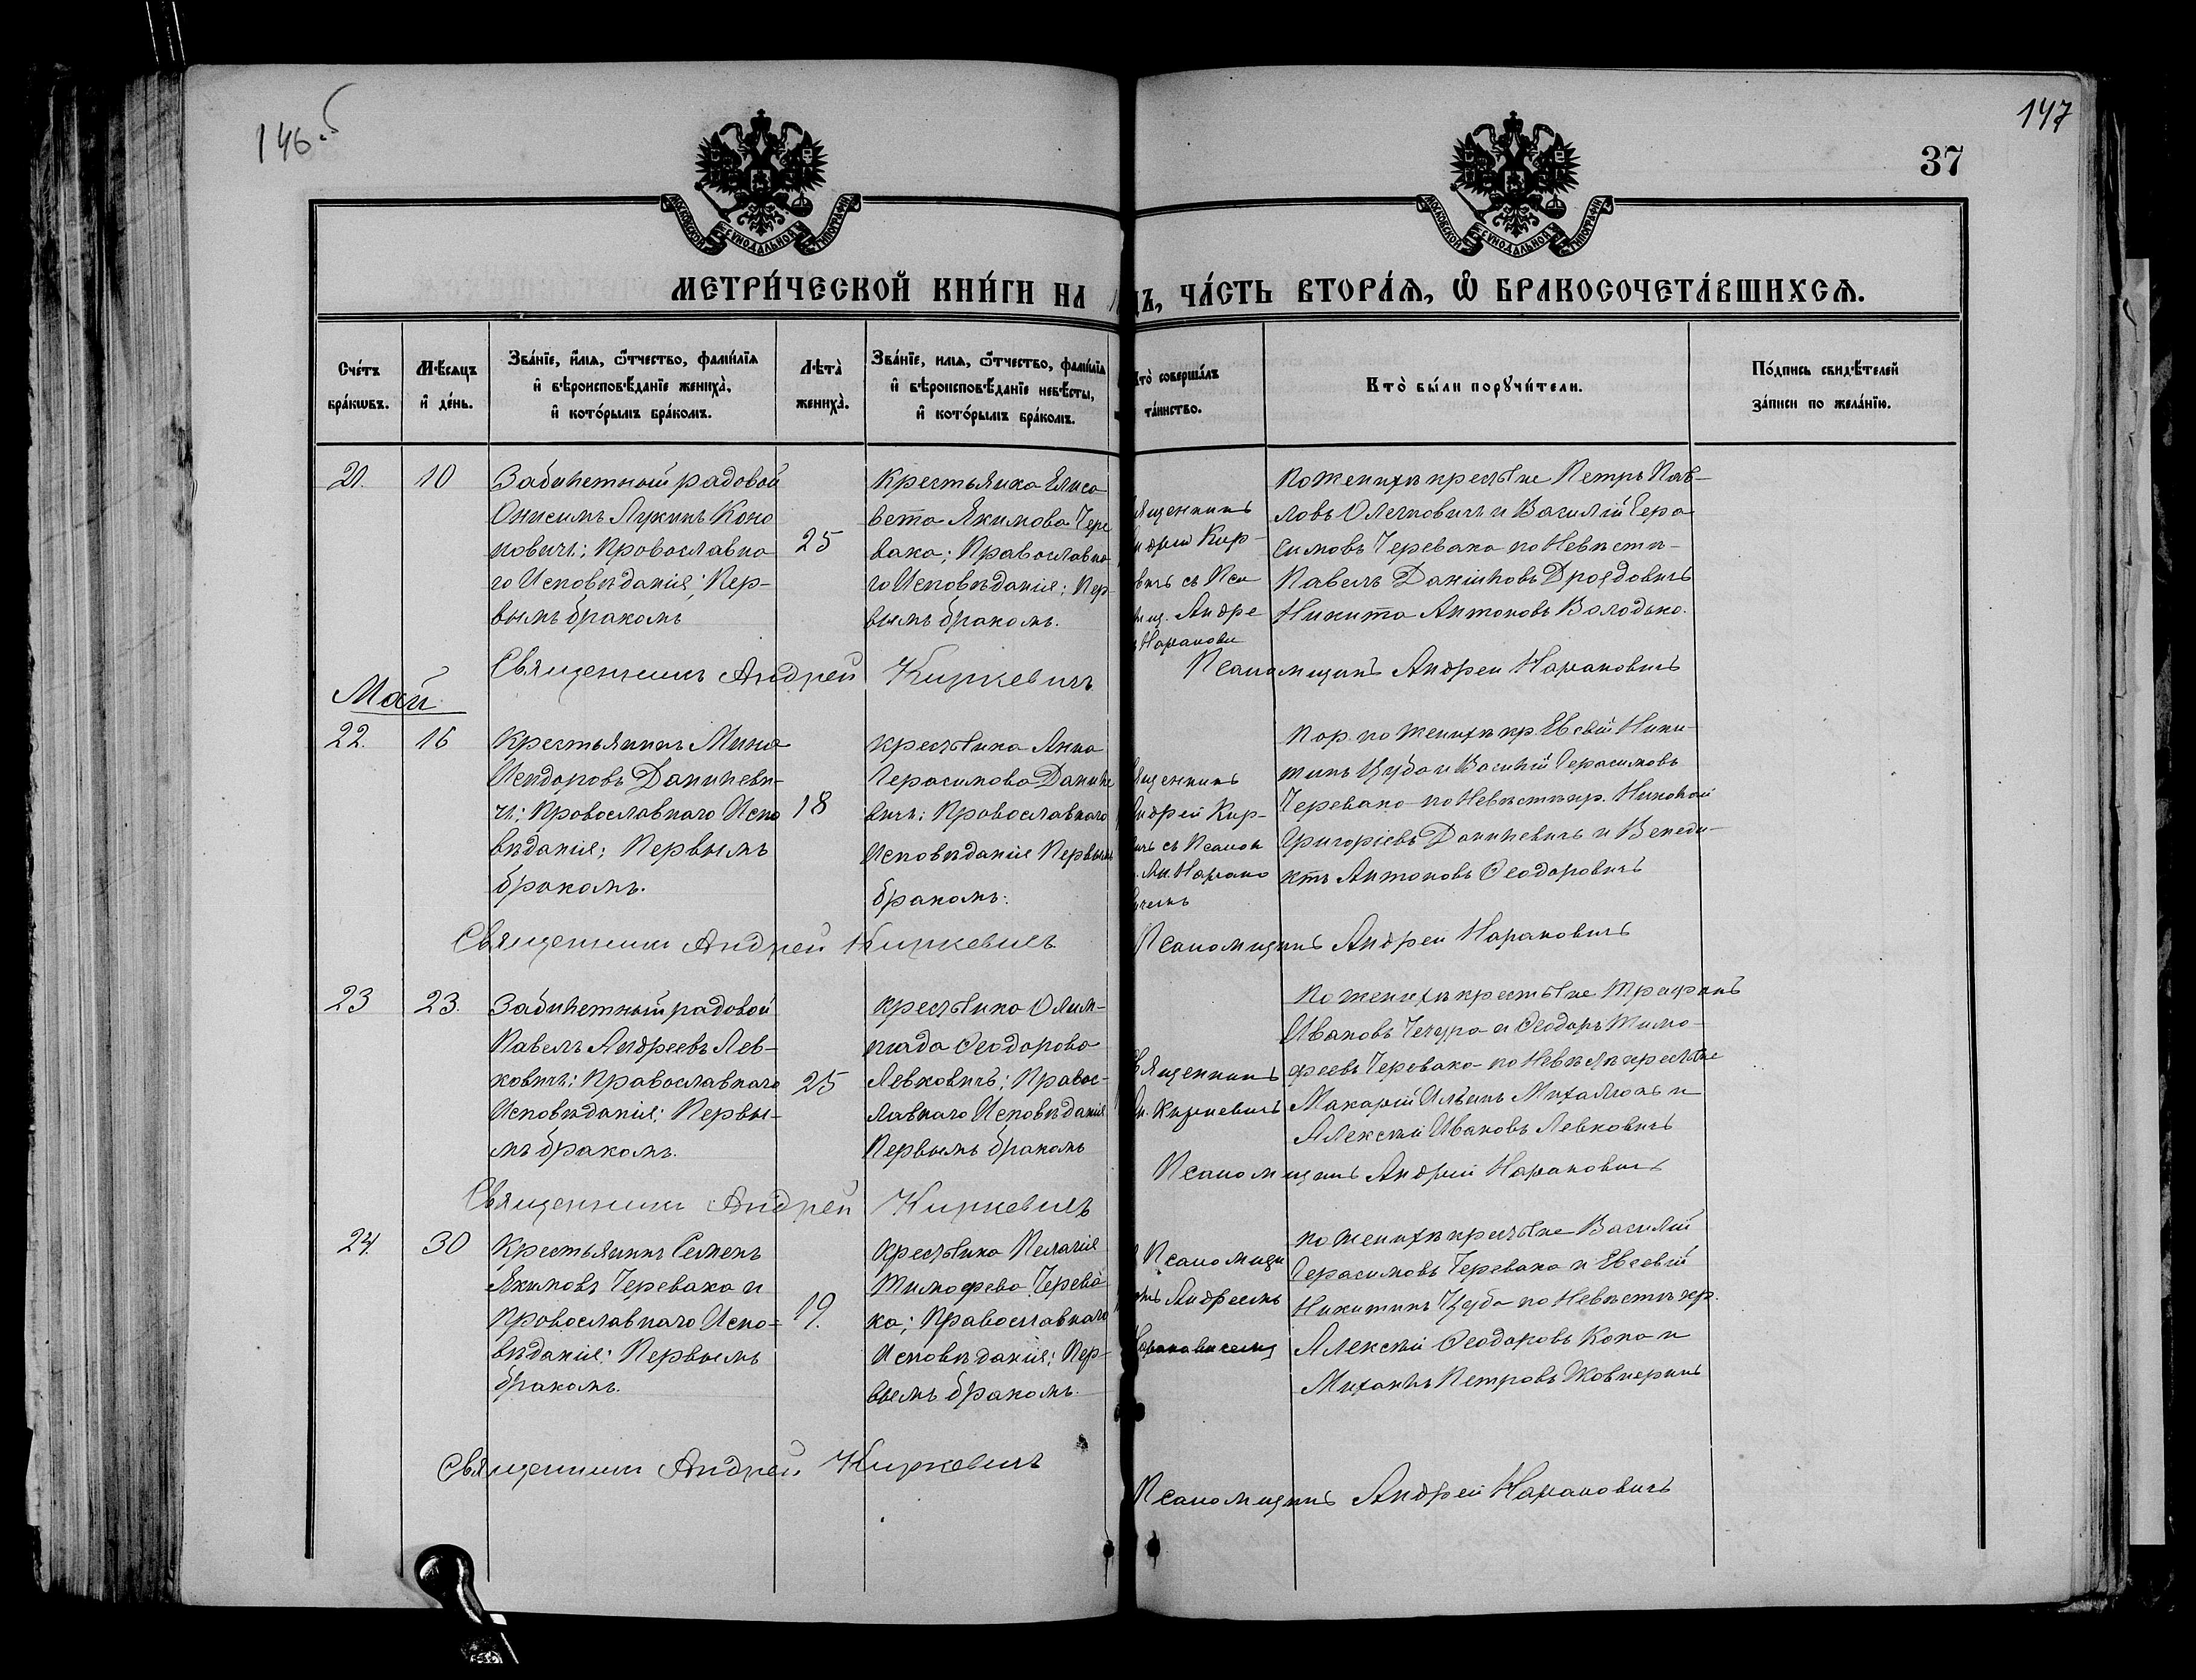 146 об
147
37
МОСКОВСКОЙ СѴНОДАЛЬНОЙ ТИПОГРАФІИ
МОСКОВСКОЙ СѴНОДАЛЬНОЙ ТИПОГРАФІИ
МЕТРИ́ЧЕСКОЙ КНИ́ГИ НА
ДЪ, ЧА́СТЬ ВТОРА́Я, Ѿ БРАКОСОЧЕТА́ВШИХСЯ.
Сче́тъ
бра́кωвъ.
Мѣ́сяцъ
и де́нь.
Зва́нїе, и́мя, ѻ҆́тчество, фами́лїя
и҆ вѣроисповѣ́данїе жениха̀,
и҆ кото́рымъ бра́комъ.
Лѣ́та
жениха̀.
Зва́нїе, имя, ѻ҆́тчество, фами́лїя
и҆ вѣроисповѣ́данїе невѣ́сты,
и҆ кото́рымъ бра́комъ.
Кто̀ соверша́лъ
та́инство.
Кто̀ бы́ли порꙋчи́тели.
По́дпись свидѣ́телей
за́писи по жела́нїю.
21.
10
Забилетный радовой
Онисимъ Лукинъ Коно
новичъ; Православна
го Исповѣданія; Пер-
вымъ бракомъ
25
Крестьянка Елиса
вета Якимова Чере
вака; Православна
го Исповѣданія; Пер-
вымъ бракомъ.
ященникъ
ндрей Кир-
вичъ съ Пса
мщ. Андре
Наранови
По женихѣ крестьяне Петръ Пав-
ловъ Олечновичъ и Василій Гера
симовъ Черевака по Невѣстѣ-
Павелъ Даниловъ Дроздовичъ
Никита Антоновъ Володько.
Священникъ Андрей Киркевичъ
Псаломщикъ Андрей Наранович
Май
22.
16
Крестьянинъ Мина
Исидоровъ Данилеви-
чъ; Православнаго Испо
вѣданія; Первымъ
бракомъ.
18
крестьянка Анна
Герасимова Даниле
вичъ; Православнаго
Исповѣданія Первымъ
бракомъ.
ященникъ
Андрей Кир-
ичъ съ Псалом
Ан Нарано
вичемъ
Пор. по женихѣ кр. Евсей Ники-
тинъ Цуба и Василій Герасимовъ
Черевако по Невѣстѣ кр. Николай
Григоріевъ Данилевичъ и Венеди-
ктъ Антоновъ Ѳеодоровичъ
Священникъ Андрей Киркевичъ
Псаломщикъ Андрей Наранович
23
23.
Забилетный радовой
Павелъ Андреевъ Лев-
ковичъ; Православнаго
Исповѣданія; Первы-
мъ бракомъ.
25
крестьянка Олим-
піада Ѳеодорова
Левковичъ; Правос-
лавнаго Исповѣданія
Первымъ бракомъ
Священникъ
Ан. Киркевичъ
По женихѣ крестьяне Трифонъ
Ивановъ Чечура и Ѳеодоръ Тимо-
феевъ Черевако по Невѣстѣ крестьяне
Макарій Ильинъ Михалюкъ и
Алексѣй Ивановъ Левковичъ
Псаломщикъ Андрей Наранович
Священникъ Андрей Киркевичъ
24.
30
Крестьянинъ Семенъ
Якимовъ Черевака и
Православнаго Испо-
вѣданія; Первымъ
бракомъ.
19.
крестьянка Пелагія
Тимофева Черева
ка; Православнаго
Исповѣданія; Пер-
вымъ бракомъ.
Псаломщи
омъ Андреемъ
Нарановичемъ
по женихѣ крестьяне Василій
Герасимовъ Черевака и Евсевій
Никитинъ Цуба по Невѣстѣ кр.
Алексѣй Ѳеодоровъ Копа и
Михаилъ Петровъ Жовнеринъ
Священникъ Андрей Киркевичъ
Псаломщикъ Андрей Наранович